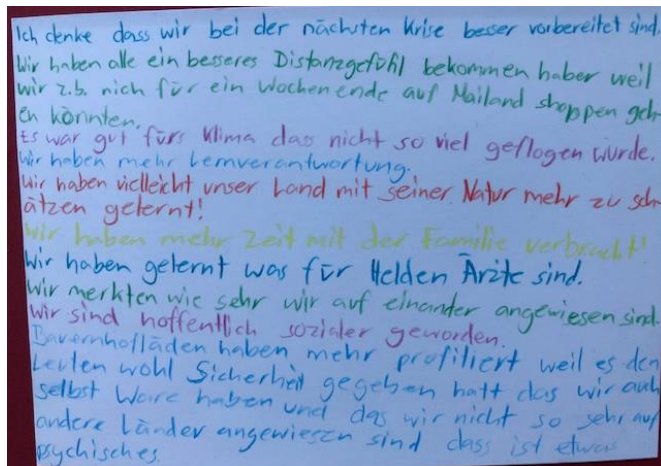 Ich denke dass wir bei der nächsten Krise besser vorbereitet sind.
Wir haben alle ein besseres Distanzgefühl bekommen haber weil
wir z.b. nich für ein Wochenende auf Mailand shoppen geh-
en könnten.
Es war gut fürs Klima das nicht so viel geflogen wurde.
Wir haben mehr Lernverantwortung.
Wir haben vielleicht unser Land mit seiner Natur mehr zu sch-
ätzen gelernt!
Wir haben mehr Zeit mit der Familie verbracht!
Wir haben gelernt was für Helden Ärzte sind.
Wir merkten wie sehr wir auf einander angewiesen sind.
Wir sind hoffentlich sozialer geworden.
Bauernhofläden haben mehr profiliert weil es den
Leuten wohl Sicherheit gegeben hatt das wir auch
selbst Ware haben und das wir nicht so sehr auf
andere Länder angewiesen sind dass ist etwas
psychisches